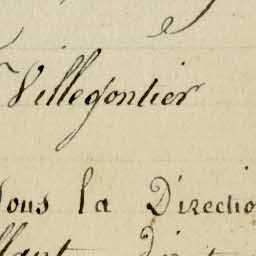 Villegontier
Sous la Directio